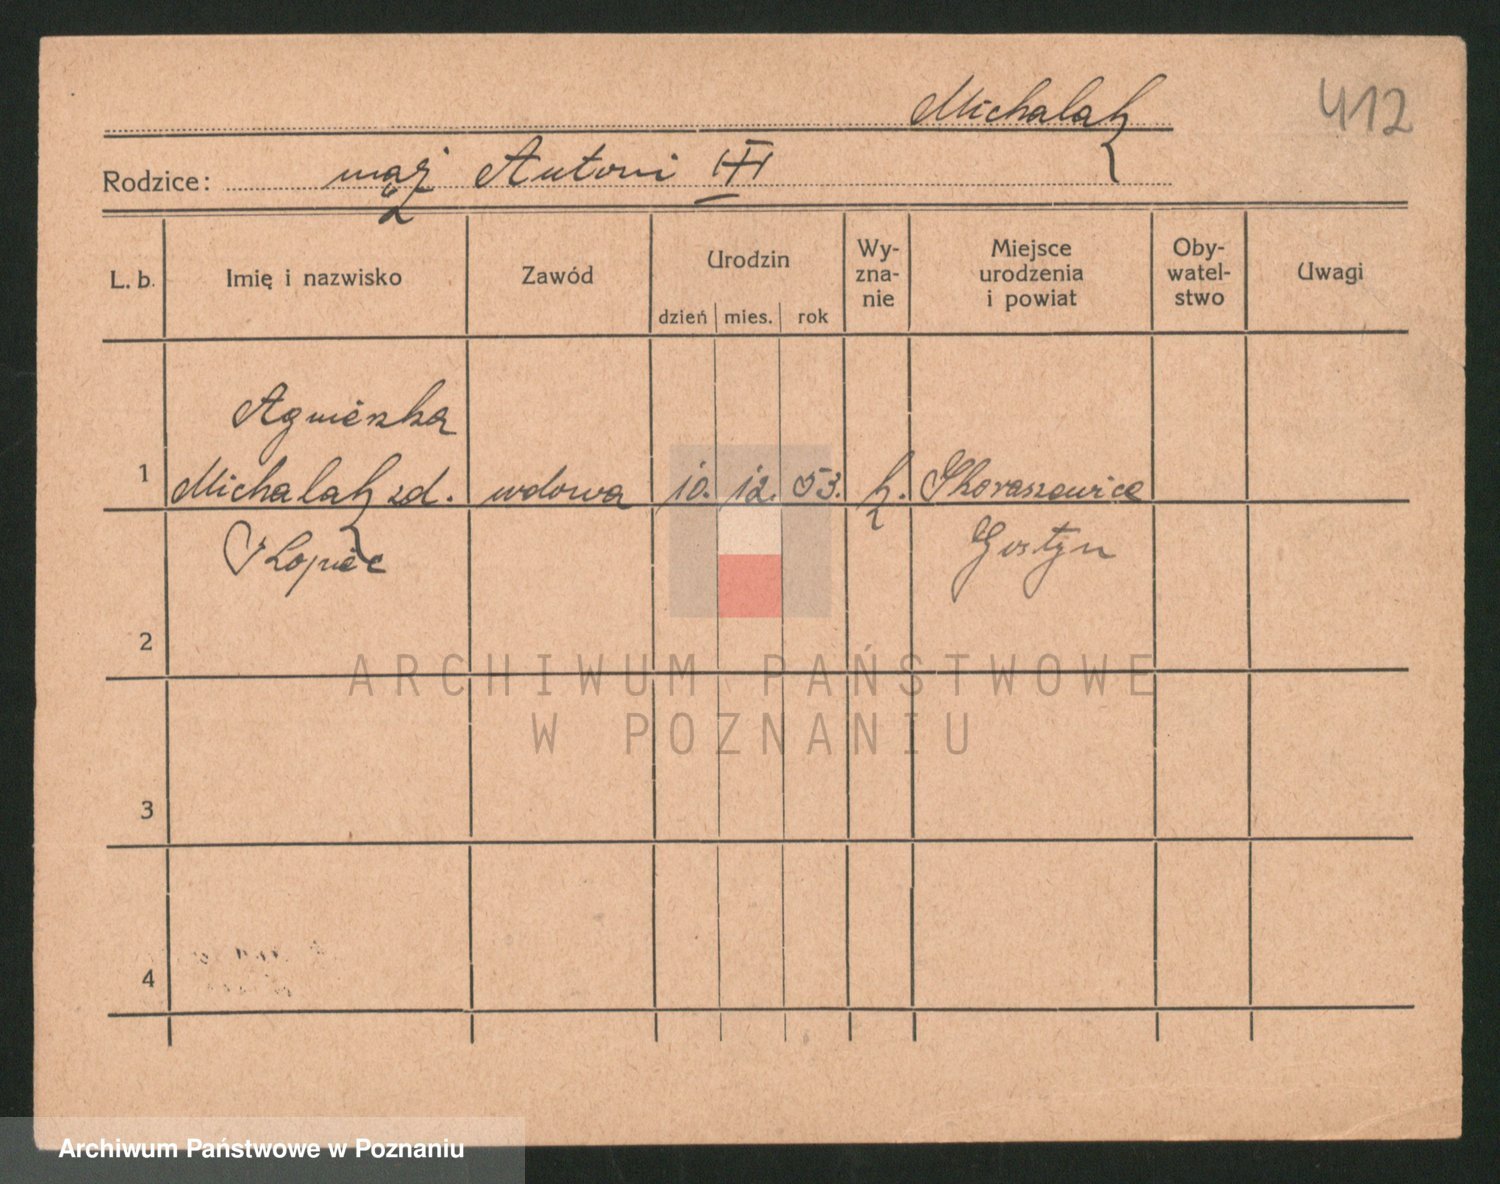 Michalak
412
Rodzice: mąż Antoni III
L. b. Imię i nazwisko Zawód Urodzin dzień mies. rok Wy-zna-nie Miejsce urodzenia i powiat Oby-watel-stwo Uwagi
Agnieszka
1 Michalak zd. wdowa 10. 12. 53. k. Skoraszewice
Skopiec Gostyn
2
ARCHIWUM PAŃSTWOWE
W POZNANIU
3
4
Archiwum Państwowe w Poznaniu